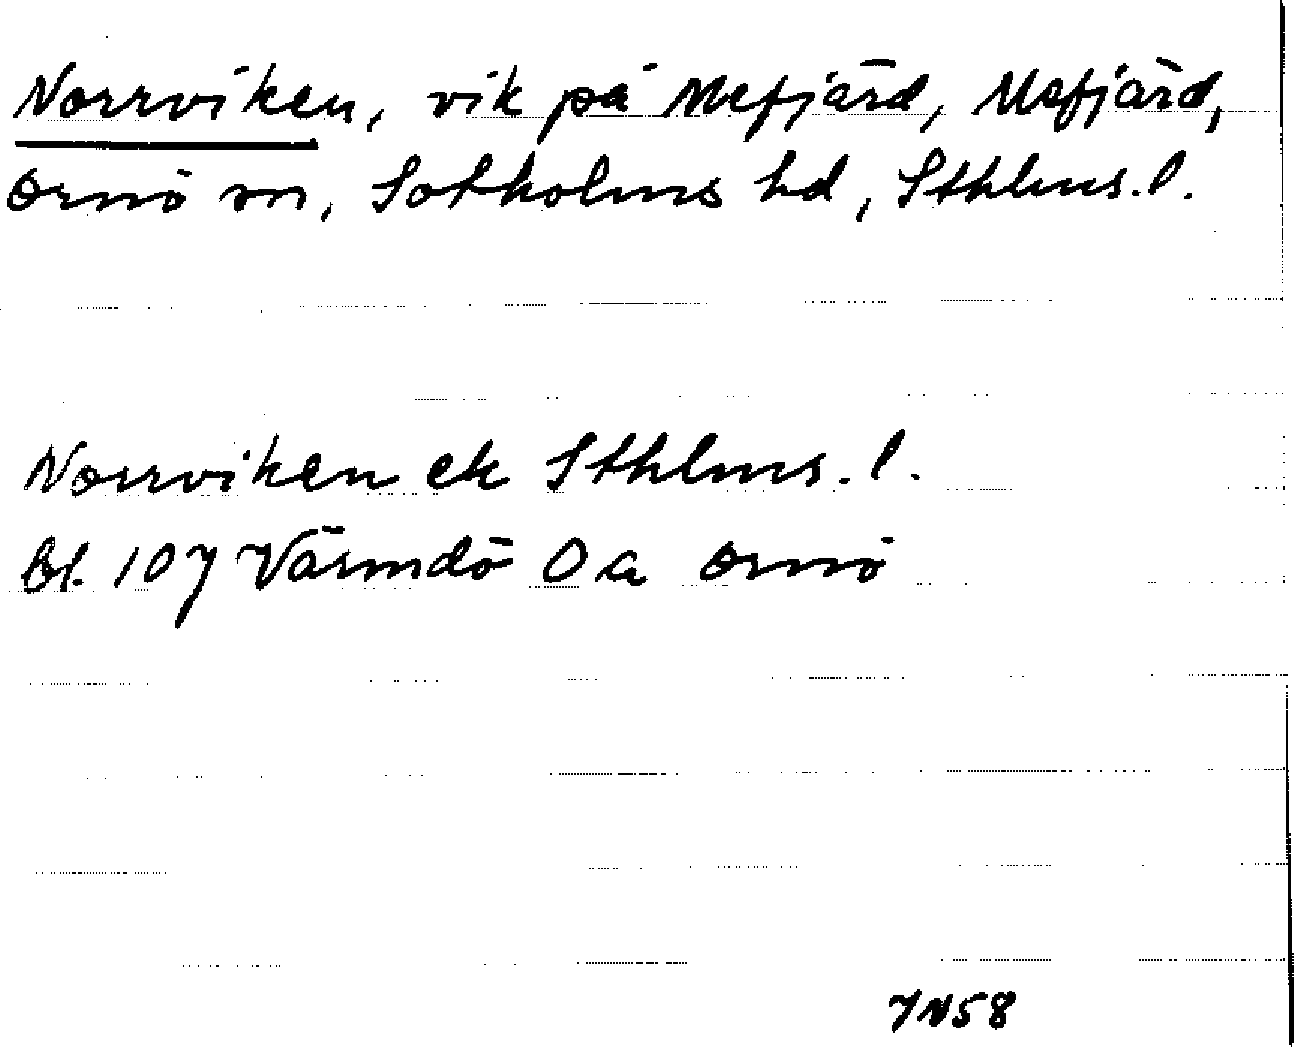 Norrviken, vik på Mefjärd, Mefjärd,
Ornö sn, Sotholms hd, Sthlms. l.
Norrviken ek Sthlms. l.
Bl. 107 Värmdö Oa Ornö
7N58